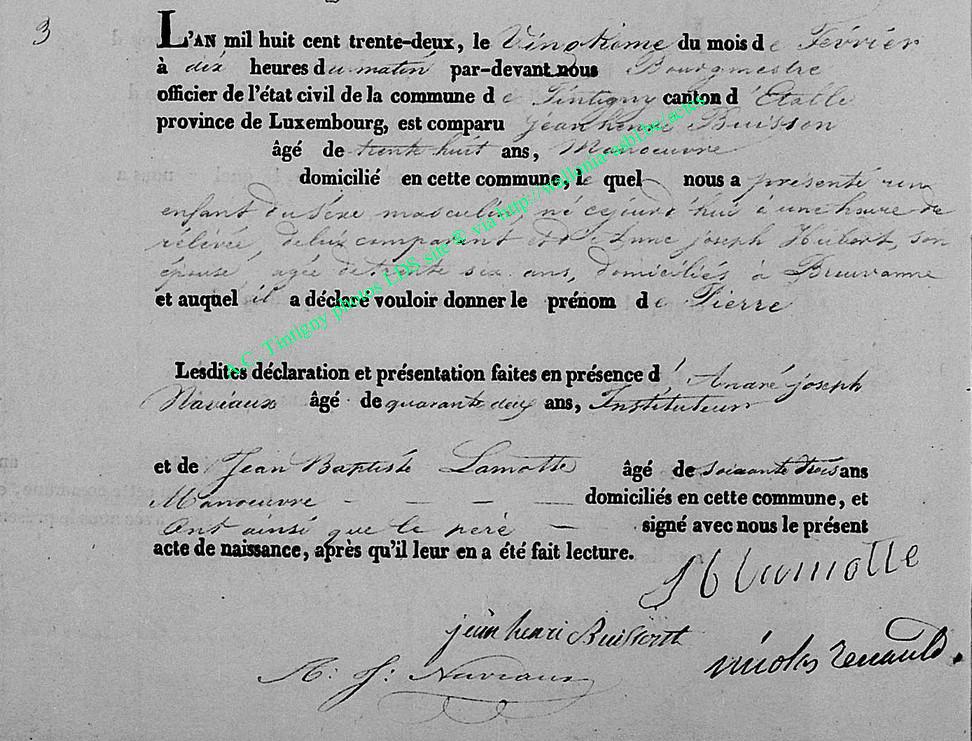 3
L'AN mil huit cent trente-deux, le Vingtième du mois de Février
à dix heures du matin par-devant nous Bourgmestre
officier de l'état civil de la commune de Tintigny canton d'Etalle
province de Luxembourg, est comparu Jean henri Buisson
âgé de trente huit ans, Manoeuvre
domicilié en cette commune, le quel nous a présenté un
enfant du Séxe masculin, né cejourd'hui à une heure de
rélevée, de lui comparant et d'Anne joseph Hubert, son
épouse, agée de trente six ans, domiciliés à Breuvanne
et auquel il a déclaré vouloir donner le prénom de Pierre
Lesdites déclaration et présentation faites en présence d'André joseph
Naviaux âgé de quarante deux ans, Instituteur
et de Jean Baptiste Lamotte âgé de soixante trois ans
Manoeuvre - - - — domiciliés en cette commune, et
Ont ainsi que le père — signé avec nous le présent
acte de naissance, après qu'il leur en a été fait lecture.
Lamotte
jean henri
A. J. Naviaux
nicolas renauld.
A.C. Tintigny photos LDS site © via http://wallonia-asbl.be/actes